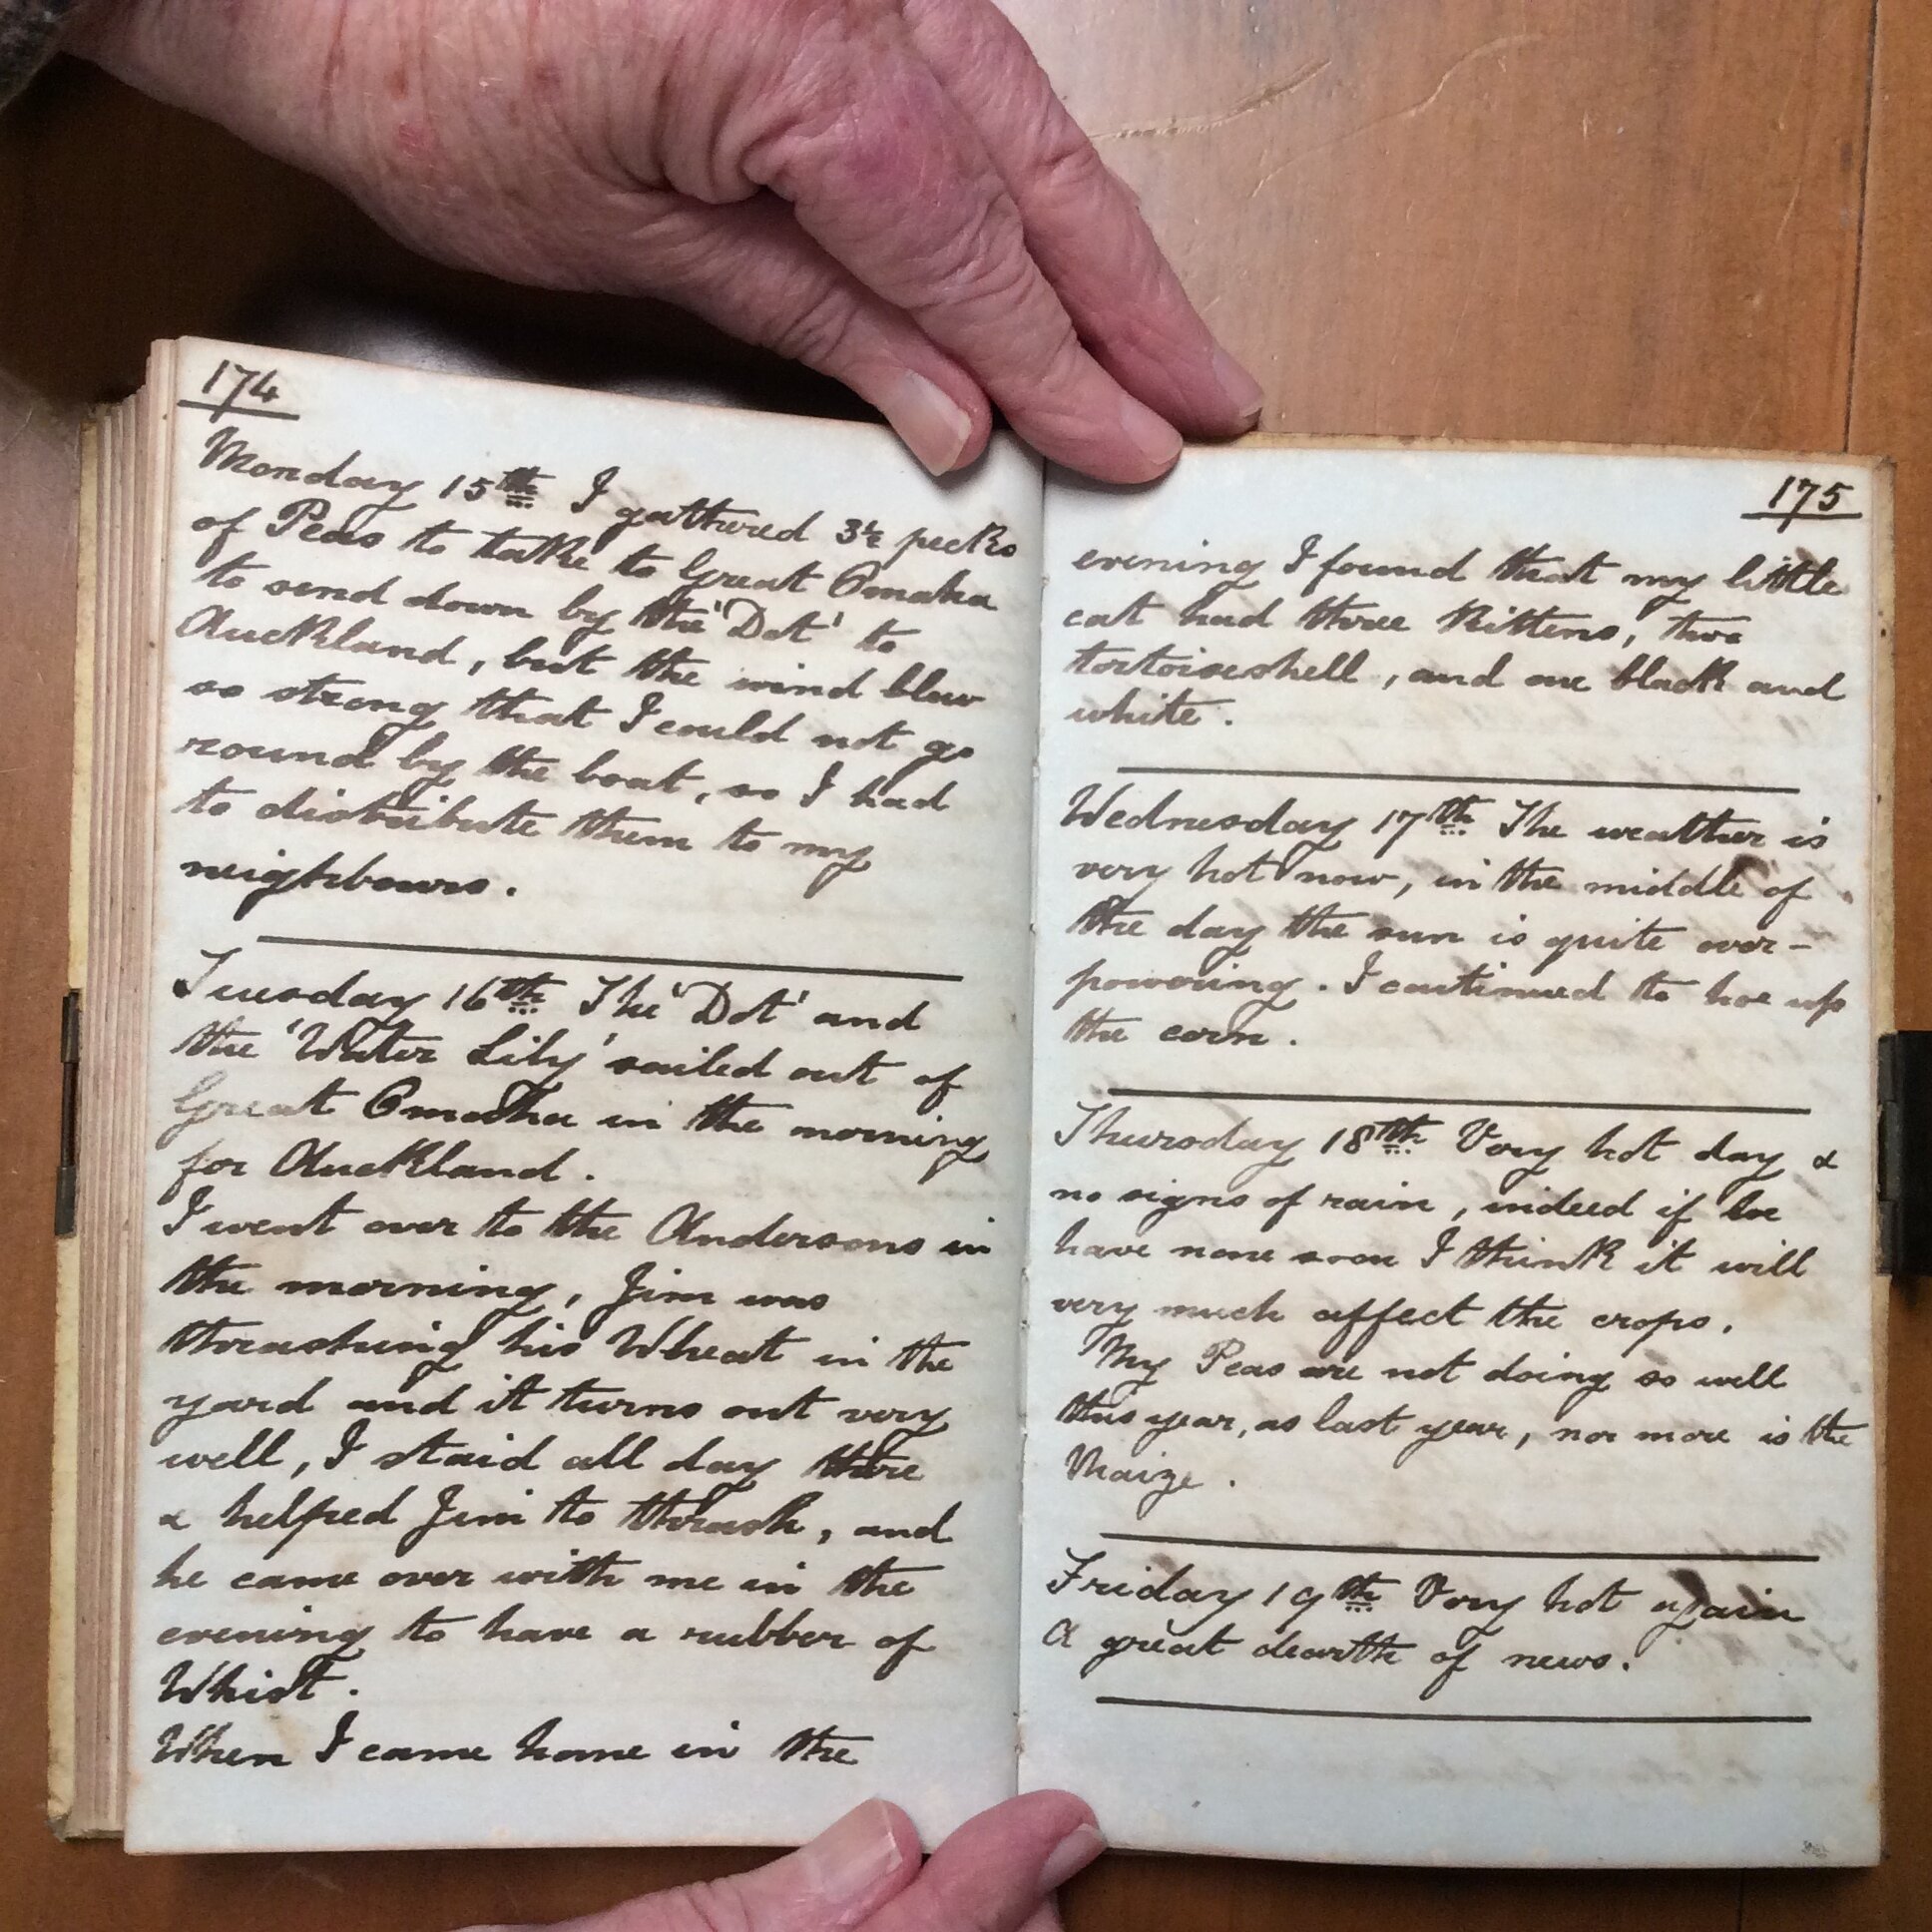 174
Monday 15th I gathered 3½ pecks
of Peas to take to Great Omaha
to send down by the 'Dot' to
Auckland, but the wind blew
so strong that I could not go
round by the boat, so I had
to distribute them to my
neighbours.
Tuesday 16th The 'Dot' and
the 'Water Lily' sailed out of
Great Omaha in the morning
for Auckland.
I went over to the Andersons in
the morning, Jim was
thrashing his Wheat in the
yard and it turns out very
well, I staid all day there
& helped Jim to thrash, and
he came over with me in the
evening to have a rubber of
Whist.
When I came home in the
175
evening I found that my little
cat had three Kittens, two
tortoiseshell, and one black and
white.
Wednesday 17th The weather is
very hot now, in the middle of
the day the sun is quite over-
powering. I continued to hoe up
the corn.
Thursday 18th Very hot day &
no signs of rain, indeed if we
have none soon I think it will
very much affect the crops.
My Peas are not doing so well
this year, as last year, nor more is the
Maize.
Friday 19th Very hot again
A great dearth of news.